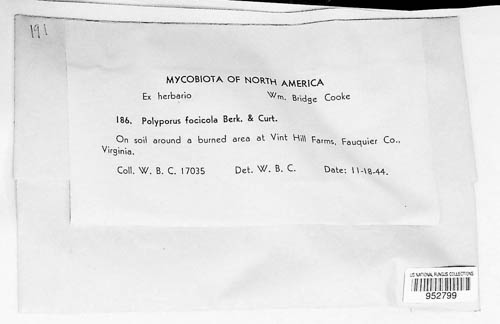 191
MYCOBIOTA OF NORTH AMERICA
Ex herbario Wm. Bridge Cooke
186. Polyporus focicola Berk. & Curt.
On soil around a burned area at Vint Hill Farms, Fauquier Co.,
Virginia.
Coll. W. B. C. 17035 Det. W. B. C. Date: 11-18-44.
US NATIONAL FUNGUS COLLECTIONS
952799